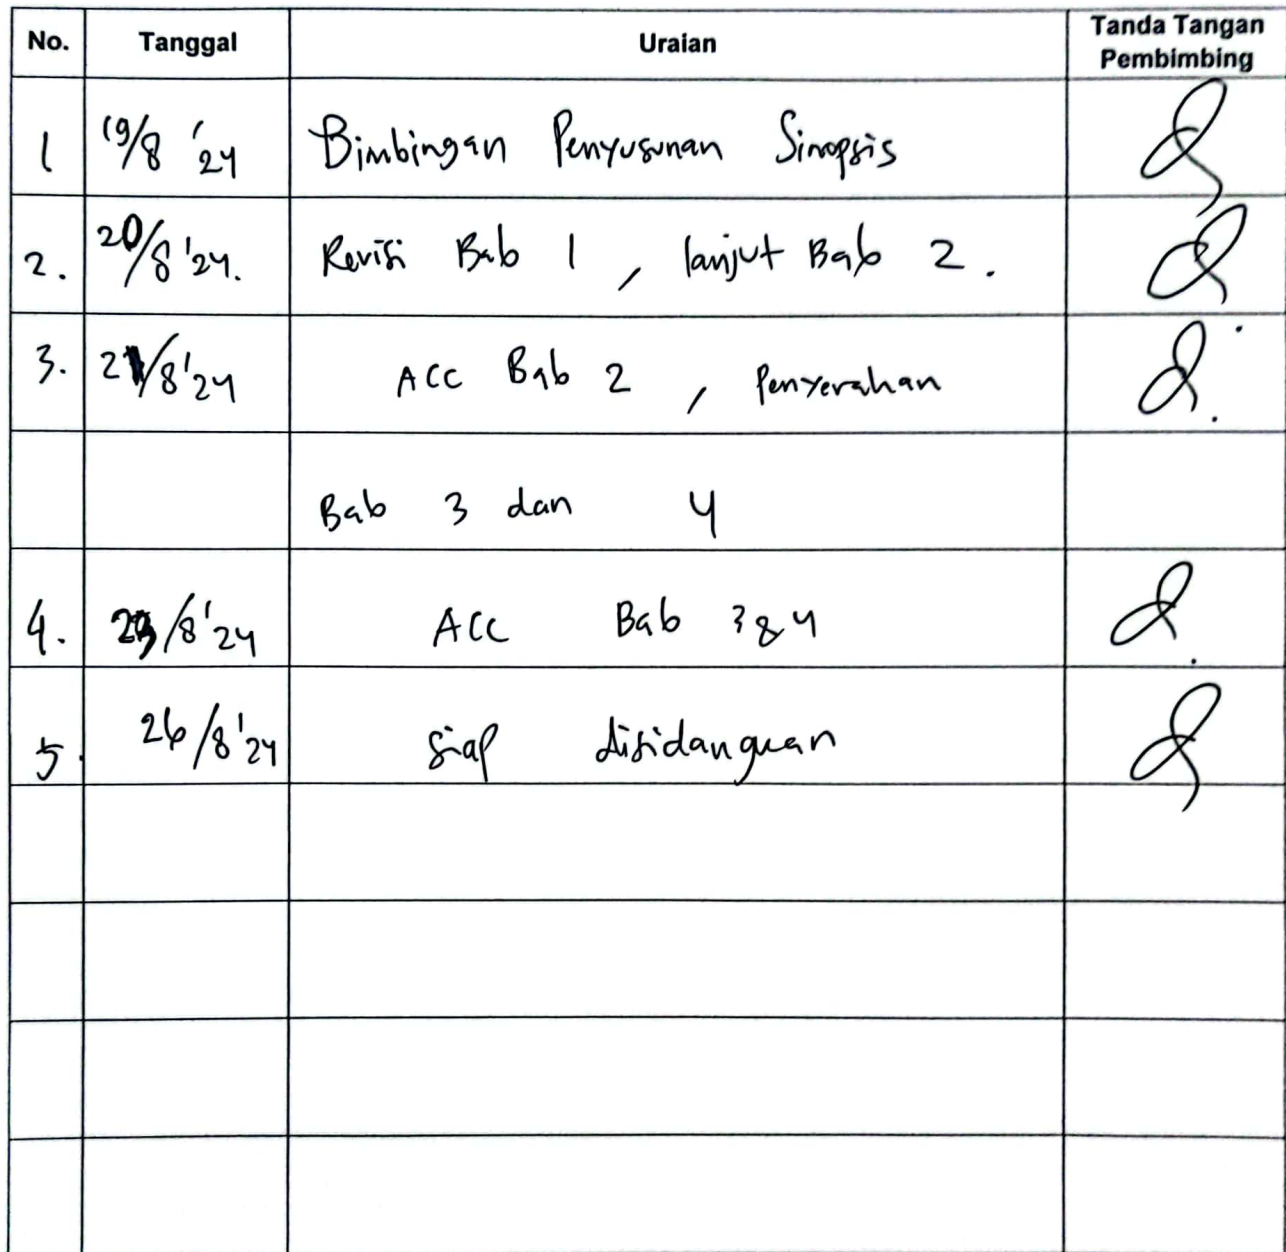 No. Tanggal Uraian Tanda Tangan Pembimbing
1 19/8 '24 Bimbingan Penyusunan Sinopsis
2. 20/8 '24. Revisi Bab 1, lanjut Bab 2.
3. 21/8 '24 ACC Bab 2, Penyerahan
Bab 3 dan 4
4. /8 '24 ACC Bab 3 & 4
5. 26/8 '24 Siap disidangkan